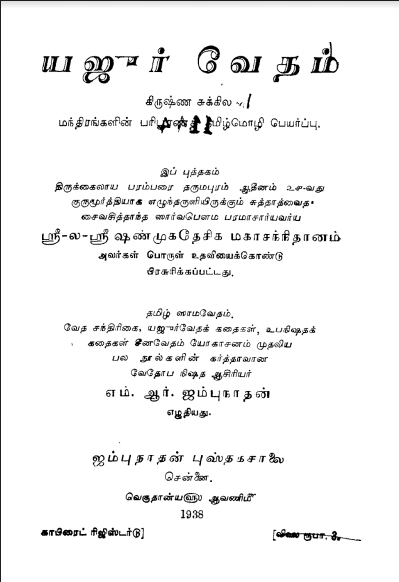 யஜுர் வேதம்
கிருஷ்ண சுக்கில
மந்திரங்களின் தமிழ்மொழி பெயர்ப்பு.
இப் புத்தகம்
திருக்கைலாய பரம்பரை தருமபுரம் ஆதீனம் உச-வது
குருமூர்த்தியாக எழுந்தருளியிருக்கும் சுத்தாத்வைத
சைவசித்தாந்த ஸார்வபௌம பரமாசார்யவர்ய
ஸ்ரீ-ல-ஸ்ரீ ஷண்முகதேசிக மகாசந்நிதானம்
அவர்கள் பொருள் உதவியைக்கொண்டு
பிரசுரிக்கப்பட்டது.
தமிழ் ஸாமவேதம்.
வேத சந்திரிகை, யஜுர்வேதக் கதைகள், உபநிஷதக்
கதைகள் சீனவேதம் யோகாசனம் முதலிய
பல நூல்களின் கர்த்தாவான
வேதோப நிஷத ஆசிரியர்
எம். ஆர். ஜம்புநாதன்
எழுதியது.
ஜம்புநாதன் புஸ்தகசாலை
சென்னை.
வெகுதான்ய௵ ஆவணி௴
1938
காபிரைட் ரிஜிஸ்டர்டு]
[விலை ரூபா.